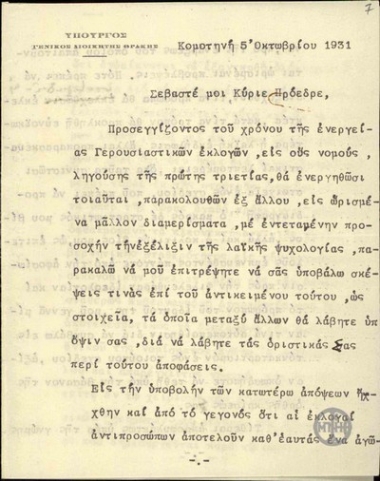 7
ΥΠΟΥΡΓΟΣ
ΓΕΝΙΚΟΣ ΔΙΟΙΚΗΤΗΣ ΘΡΑΚΗΣ
Κομοτηνή 5 Οκτωβρίου 1931
Σεβαστέ μοι Κύριε Πρόεδρε,
Προσεγγίζοντος τοῦ χρόνου τῆς ἐνεργεί
ας Γερουσιαστικῶν ἐκλογῶν ,εἰς οὕς νομούς ,
ληγούσης τῆς πρώτης τριετίας,θά ἐνεργηθῶσι
τοιαῦται, παρακολουθῶν ἐξ ἄλλου ,εἰς ὡρισμέ
να μᾶλλον διαμερίσματα ,μέ ἐντεταμένην προ
σοχήν τήνἐξέλιξιν τῆς λαϊκῆς ψυχολογίας ,πα
ρακαλῶ νά μοῦ ἐπιτρέψητε νά σᾶς ὑποβάλω σκέ
ψεις τινάς ἐπί τοῦ ἀντικειμένου τούτου ,ὡς
στοιχεῖα, τά ὁποῖα μεταξύ ἄλλων θά λάβητε ὑπ
ὄψιν σας ,διά νά λάβητε τάς ὁριστικάς Σας
περί τούτου ἀποφάσεις.
Εἰς τήν ὑποβολήν τῶν κατωτέρω ἀπόψεων ἤ
χθην καί ἀπό τό γεγονός ὅτι αἱ ἐκλογαί
ἀντιπροσώπων ἀποτελοῦν καθ'ἑαυτάς ἕνα ἀγῶ
-.-